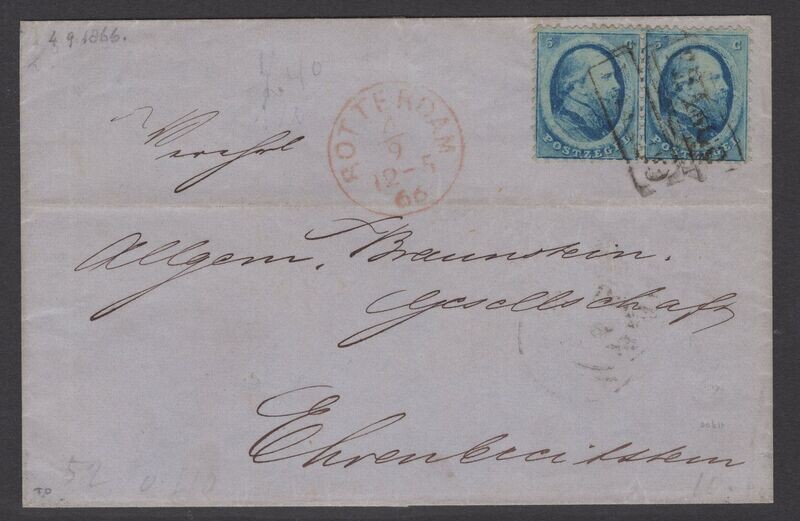 4.9.1866.
5 C
POSTZEGEL
5 C
POSTZEGEL
FRANCO
ROTTERDAM
4
9
12-5
66
Allgem. Braunstein
Gesellschaft
Ehrenbreitstein
52
T.D